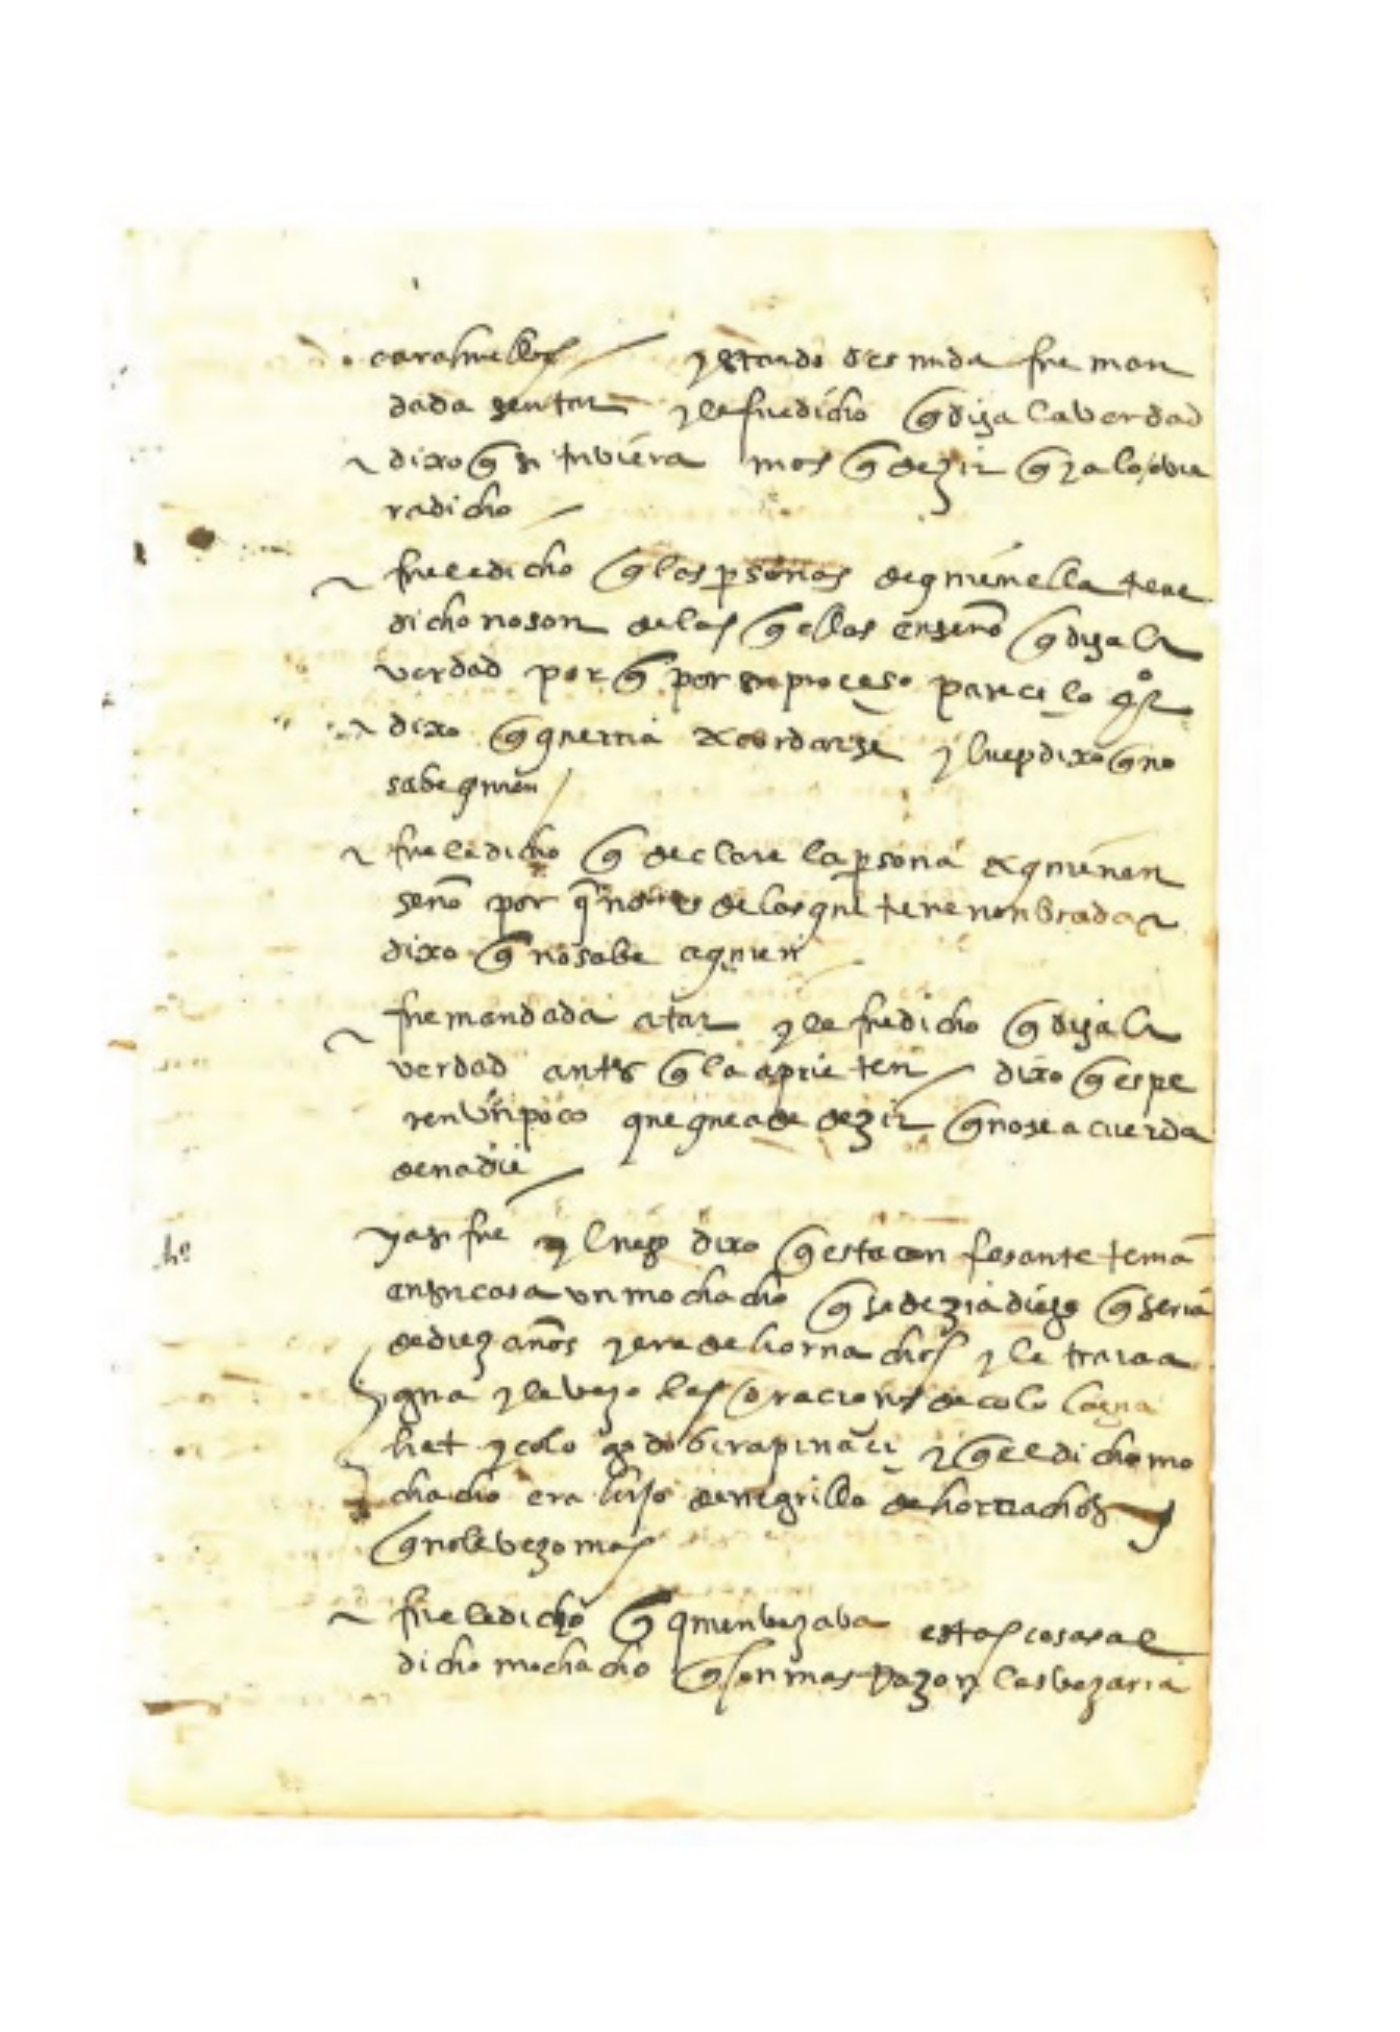 carahuelles / y estando desnuda fue man
dada sentar y le fue dicho q diga la verdad
dixo q si tuviera mas q dezir q ya lo ovie
ra dicho /
fuele dicho q las psonas de quien ella tiene
dicho no son de las q ellas enseño q diga la
verdad por q por su proceso parece lo
dixo q querria acordarse y luego dixo q no
sabe quien /
fuele dicho q declare la psona a quien en
seño por q no es de las que tiene nonbradas
dixo q no sabe a quien
fue mandada atar y le fue dicho q diga la
verdad antes q la aprieten / dixo q espe
ren un poco que que a de dezir q no se acuerda
de nadie /
y asi fue y luego dixo q esta confesante tenia
en su casa un mochacho q se dezia diego q seria
de diez años y era de hornachos y le traia a
gua y le vezo las oraciones de colo lagua
hat y colo godo birapinaci y q el dicho mo
chacho era hijo de negrillo de hornachos y
q no le vezo mas
fuele dicho q quien vezava estas cosas al
dicho mochacho q con mas razon las vezaria